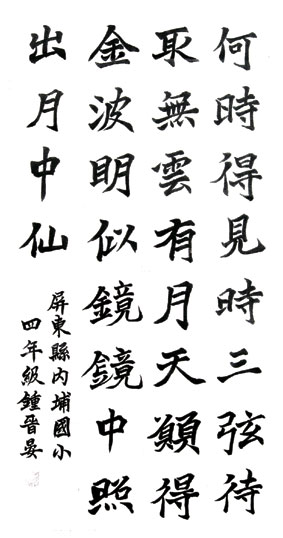 何時得見時三弦待
取無雲有月天願得
金波明似鏡鏡中照
出月中仙
屏東縣內埔國小
四年級鍾晉晏